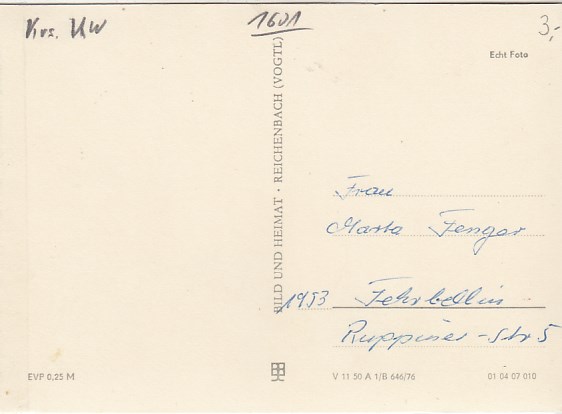 Krs. KW
1601
3,-
Echt Foto
BILD UND HEIMAT · REICHENBACH (VOGTL)
Frau
Marta Fenger
1953 Fehrbellin
Ruppiner-Str 5
EVP 0,25 M
V 11 50 A 1/B 646/76
01 04 07 010